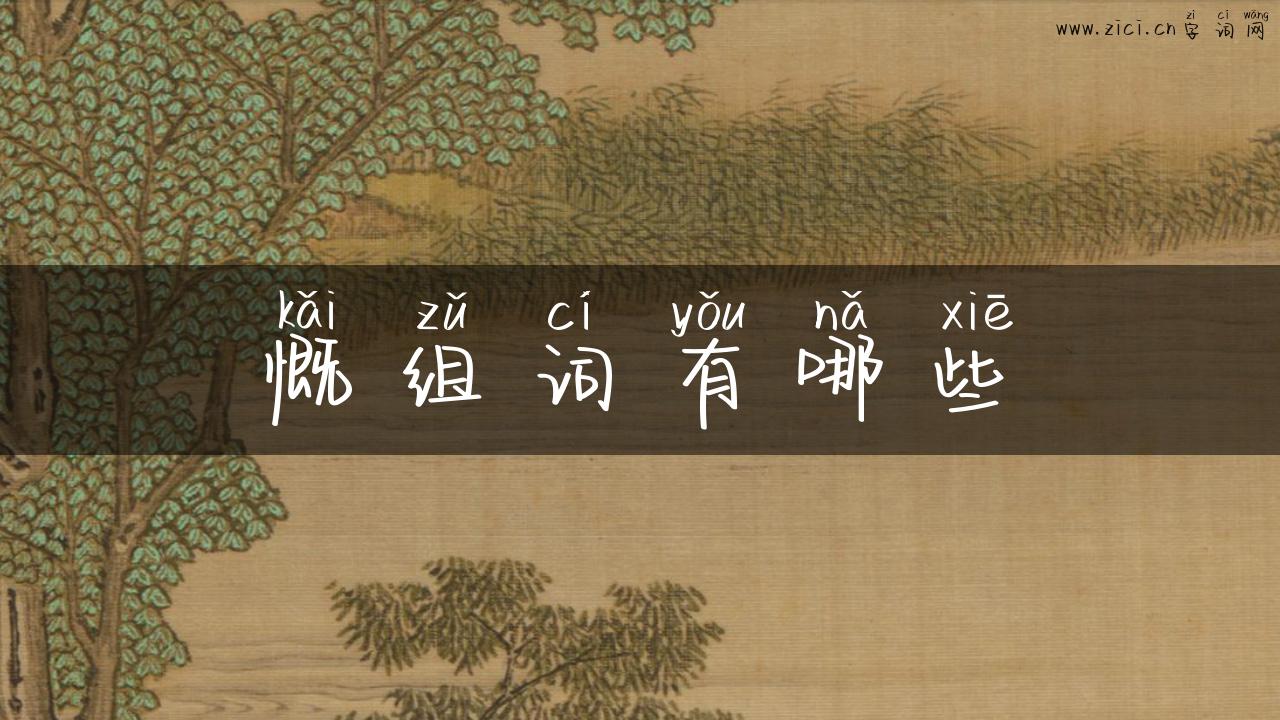 zì cí wǎng
www.zici.cn字词网
kǎi zǔ cí yǒu nǎ xiē
慨组词有哪些